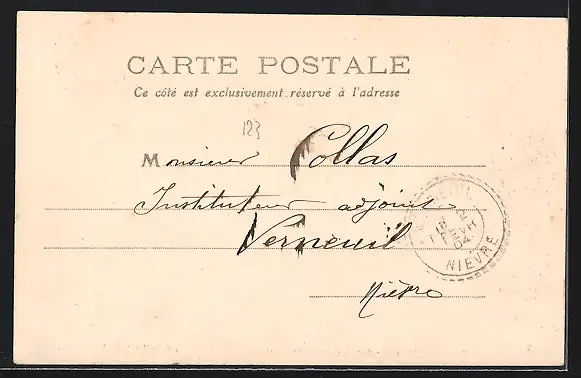 CARTE POSTALE
Ce côté est exclusivement réservé à l'adresse
123
Monsieur Collas
Instituteur adjoint
Verneuil
Nièvre
NIEVRE
04